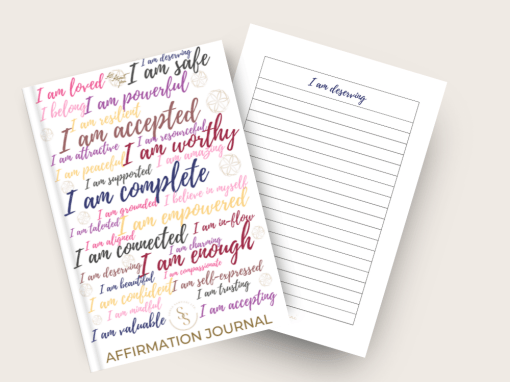 I am deserving
I am loved
I am safe
I belong
I am powerful
I am resilient
I am accepted
I am resourceful
I am attractive
I am worthy
I am peaceful
I am amazing
I am supported
I am complete
I am grounded
I believe in myself
I am talented
I am empowered
I am aligned
I am in-flow
I am connected
I am charming
I am enough
I am deserving
I am compassionate
I am beautiful
I am self-expressed
I am confident
I am trusting
I am mindful
I am accepting
I am valuable
AFFIRMATION JOURNAL
I am deserving